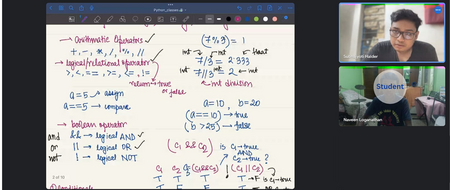 Python_classes
→ Arithmetic Operators
+, -, *, /, %, //
(7%3) = 1
int int float
7/3 = 2.333
→ logical/relational operator
>, <, ==, >=, <=, !=
int
7//3 = 2 ← int
→ return → true or false
int division
a=5 ↳ assign
a==5 → compare
a=10, b=20
(a==10) → true
(b>25) → false
→ boolean operator
and && → logical AND ✓
or || → logical OR ✓
not ! → logical NOT
(C₁ && C₂)
is C₁→true
AND
C₂→true ?
C₁ C₂ (C₁&&C₂)
! (C₁ || C₂)
T T T
T → is C₁→true
2 of 10
Student
Naveen Loganathan